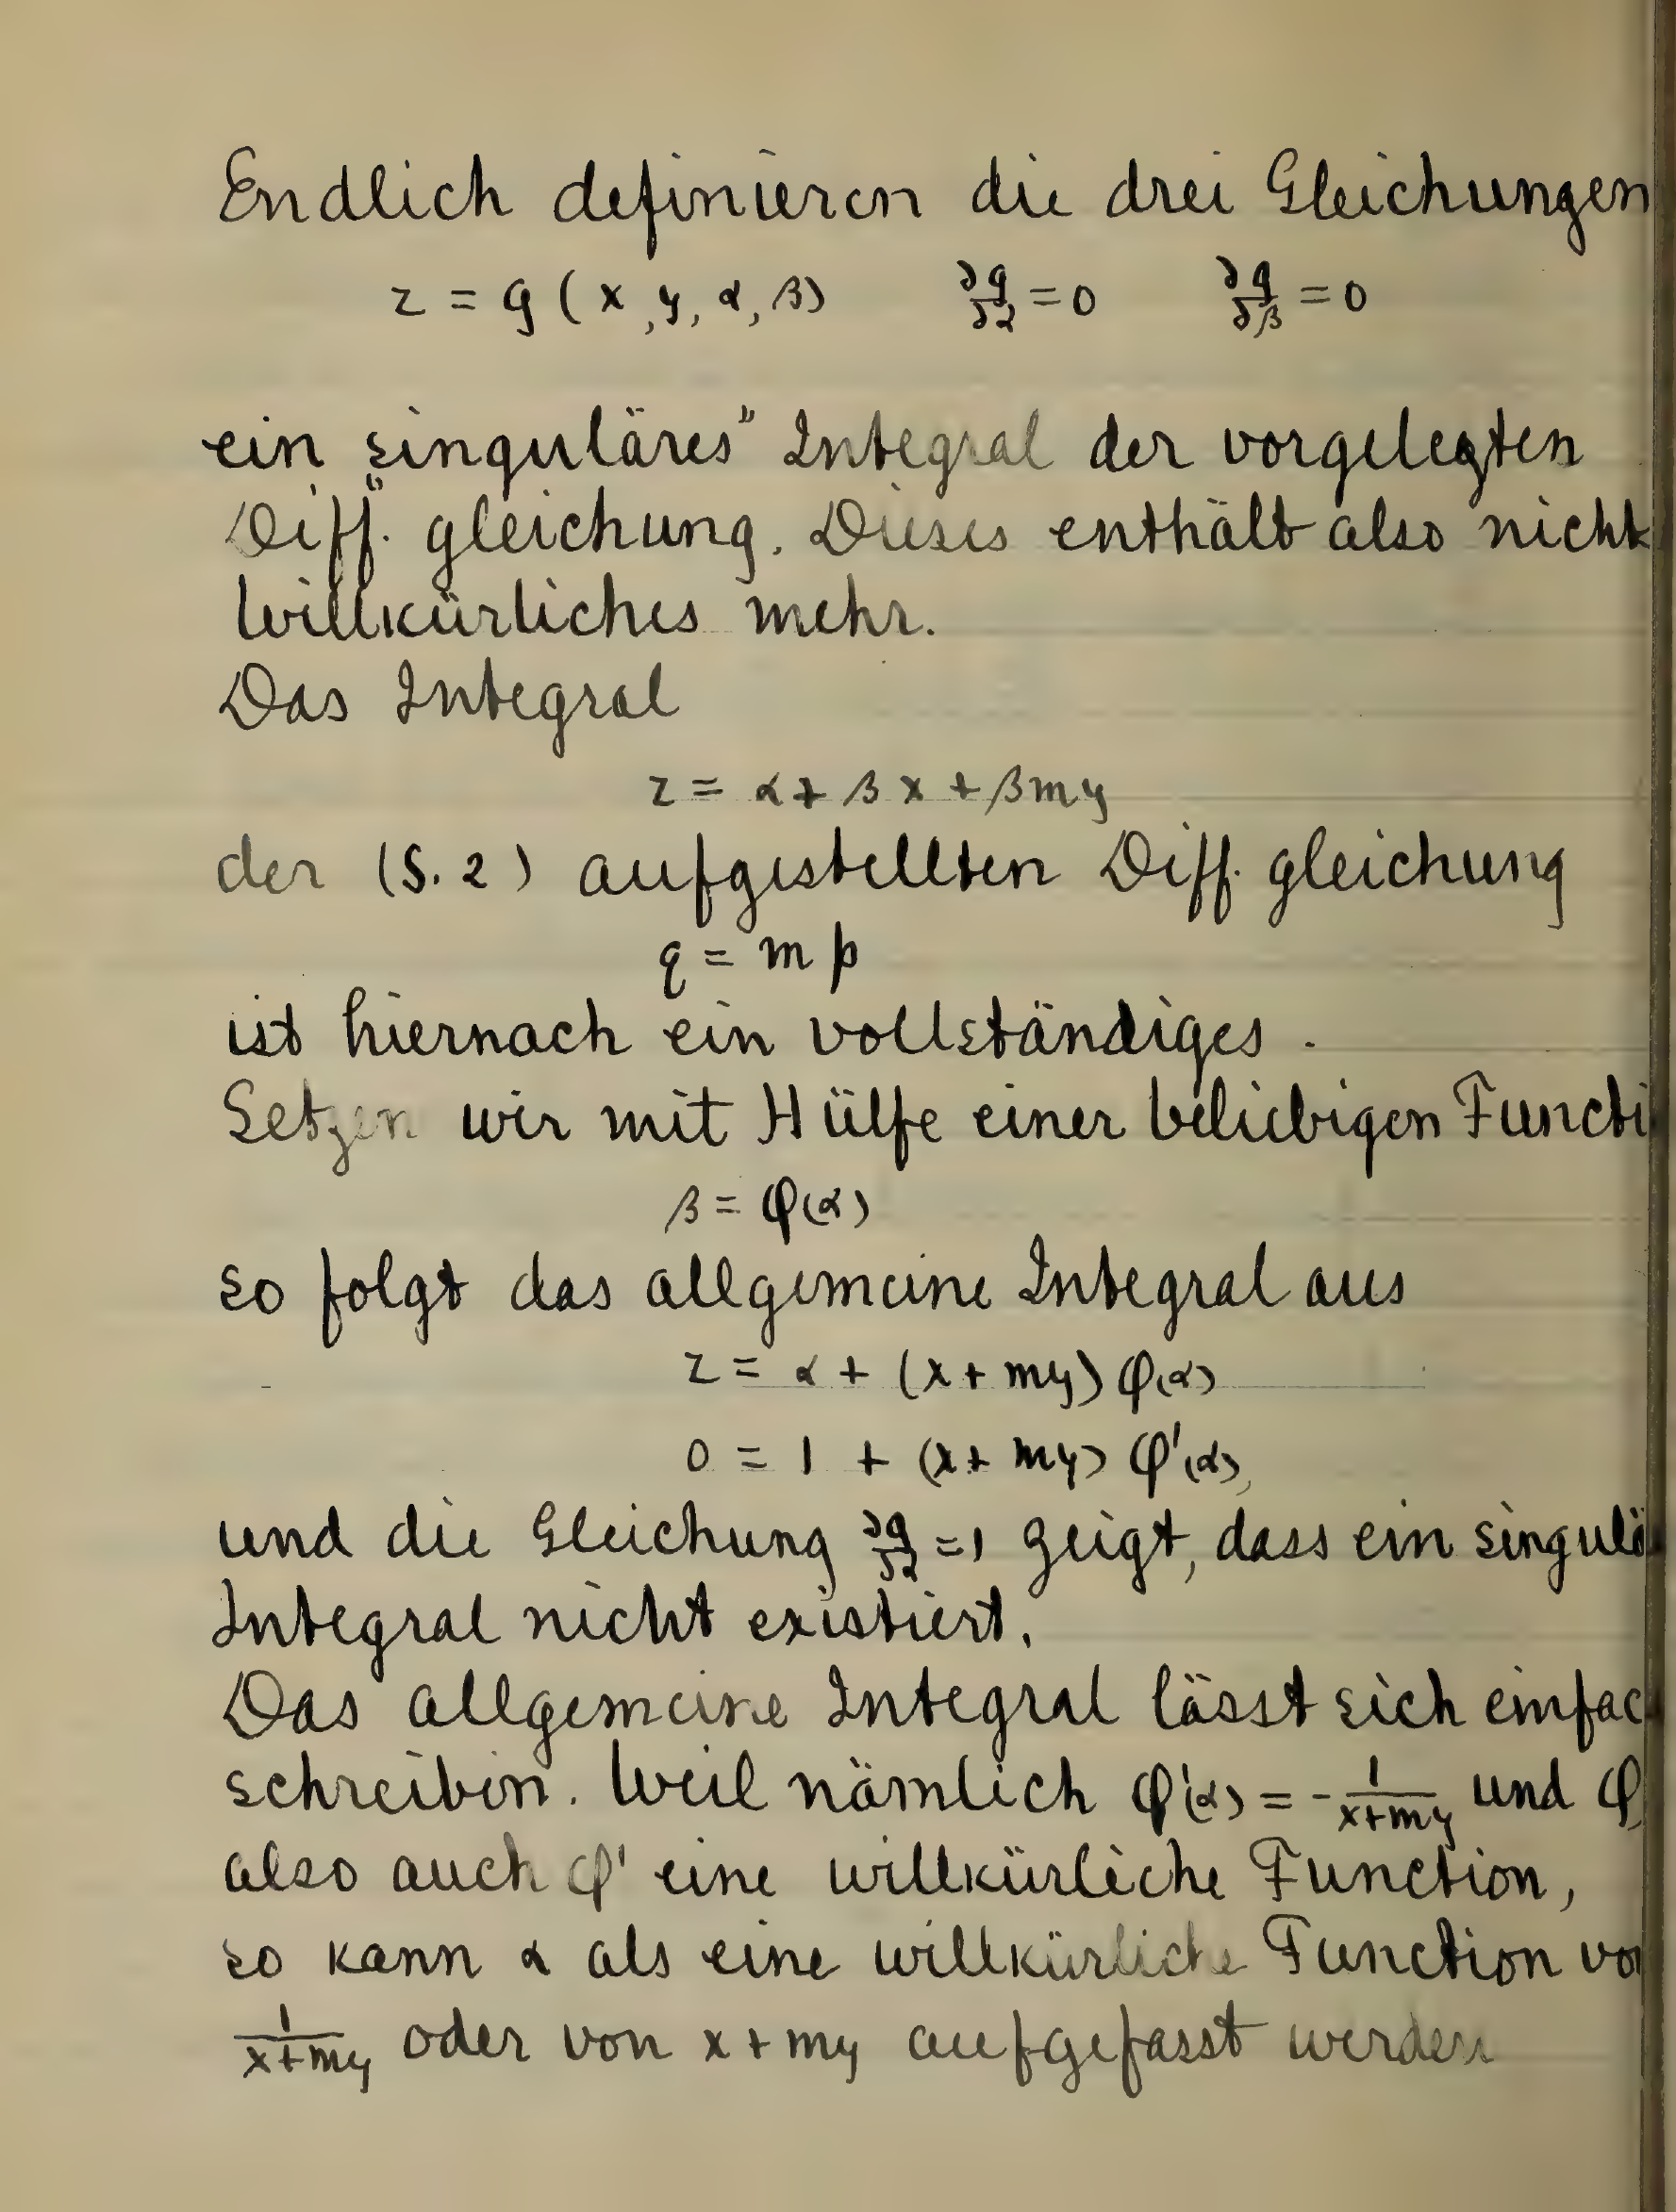 Endlich definieren die drei Gleichungen
z = g (x, y, α, β) ∂g/∂α = 0 ∂g/∂β = 0
ein „singuläres" Integral der vorgelegten
Diff. gleichung. Dieses enthält also nicht
Willkürliches mehr.
Das Integral
z = α + βx + βmy
der (S. 2) aufgestellten Diff. gleichung
q = mp
ist hiernach ein vollständiges.
Setzen wir mit Hülfe einer beliebigen Functi
β = φ(α)
so folgt das allgemeine Integral aus
z = α + (x + my) φ(α)
0 = 1 + (x + my) φ'(α),
und die Gleichung ∂g/∂α = 1 zeigt, dass ein singulä
Integral nicht existiert.
Das allgemeine Integral lässt sich einfac
schreiben. Weil nämlich φ'(α) = - 1/x+my und φ,
also auch φ' eine willkürliche Function,
so kann α als eine willkürliche Function vo
1/x+my oder von x + my aufgefasst werden